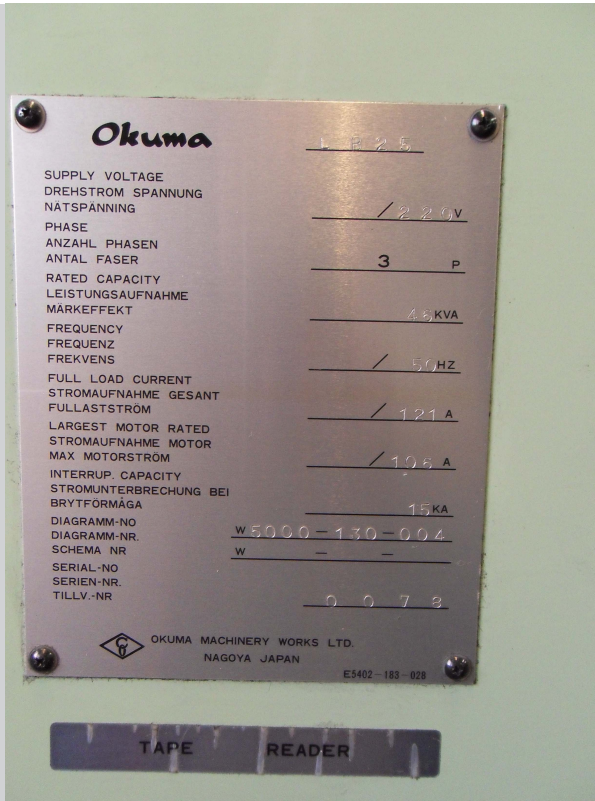 Okuma LB25
SUPPLY VOLTAGE
DREHSTROM SPANNUNG
NÄTSPÄNNING /220V
PHASE
ANZAHL PHASEN
ANTAL FASER 3 P
RATED CAPACITY
LEISTUNGSAUFNAHME
MÄRKEFFEKT 46KVA
FREQUENCY
FREQUENZ
FREKVENS / 50HZ
FULL LOAD CURRENT
STROMAUFNAHME GESANT
FULLASTSTRÖM / 121 A
LARGEST MOTOR RATED
STROMAUFNAHME MOTOR
MAX MOTORSTRÖM / 106 A
INTERRUP. CAPACITY
STROMUNTERBRECHUNG BEI
BRYTFÖRMÅGA 15KA
DIAGRAMM-NO
DIAGRAMM-NR. W5000-130-004
SCHEMA NR W - -
SERIAL-NO
SERIEN-NR.
TILLV.-NR 0078
OKUMA MACHINERY WORKS LTD.
NAGOYA JAPAN
E5402-183-028
TAPE READER